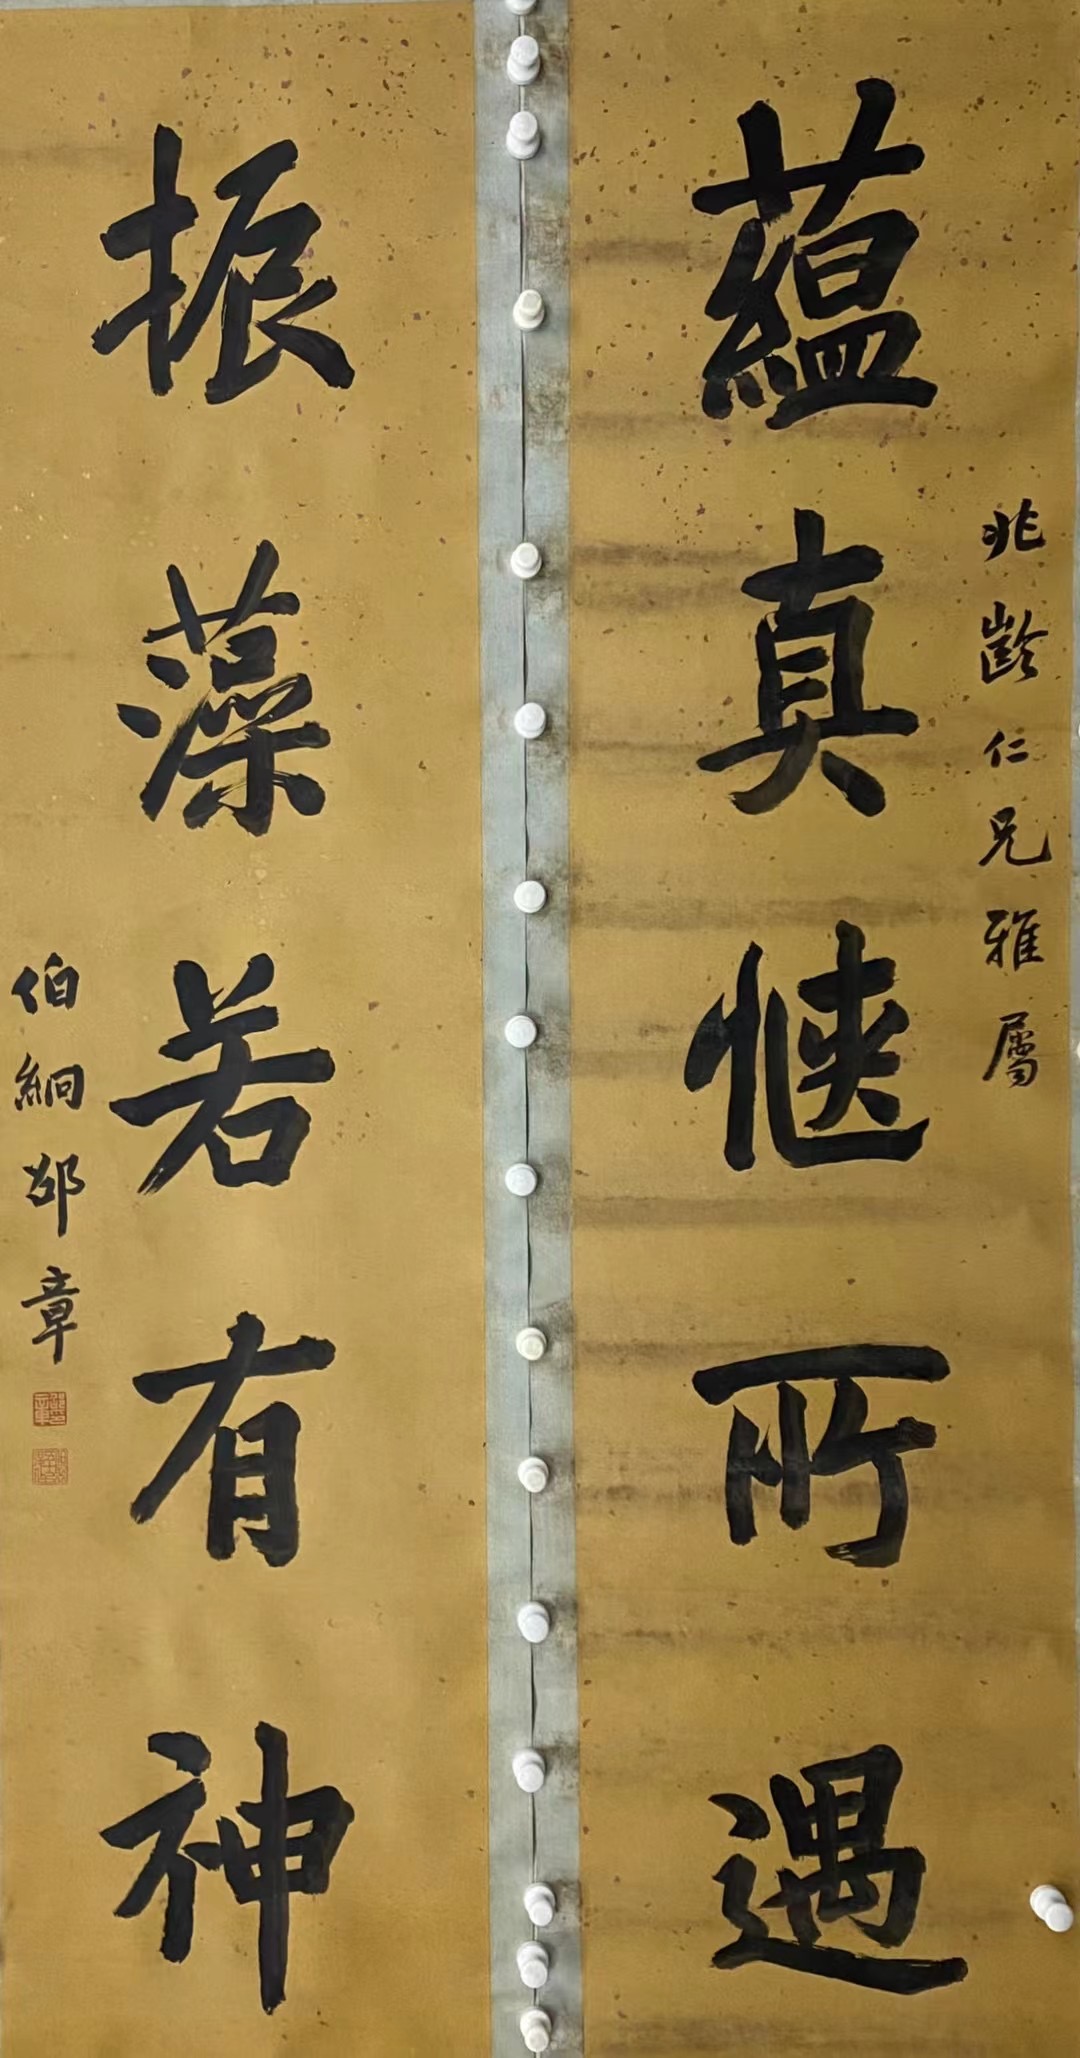 兆齡仁兄雅屬
蘊真愜所遇
振藻若有神
伯絅邵章